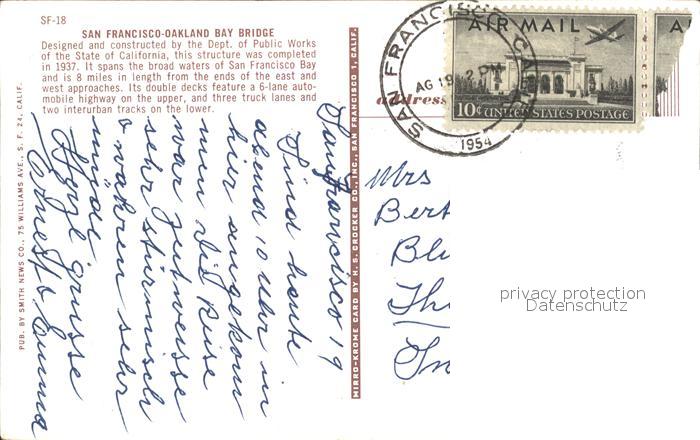 SF-18
SAN FRANCISCO-OAKLAND BAY BRIDGE
Designed and constructed by the Dept. of Public Works
of the State of California, this structure was completed
in 1937. It spans the broad waters of San Francisco Bay
and is 8 miles in length from the ends of the east and
west approaches. Its double decks feature a 6-lane auto-
mobile highway on the upper, and three truck lanes and
two interurban tracks on the lower.
PUB. BY SMITH NEWS CO., 75 WILLIAMS AVE., S. F. 24, CALIF.
San Francisco 19
Sind heute
abend 10 Uhr in
hier angekom
men die Reise
war zeitweise
sehr stürmisch
& wahren sehr
müde
Herze grüsse
Ernest & Emma
MIRRO-KROME CARD BY H. S. CROCKER CO., INC., SAN FRANCISCO 1, CALIF.
SAN FRANCISCO CALIF.
AG 19 2 PM
1954
AIR MAIL
10¢ UNITED STATES POSTAGE
A
address
Mrs
Bert
Blu
Th
In
privacy protection
Datenschutz